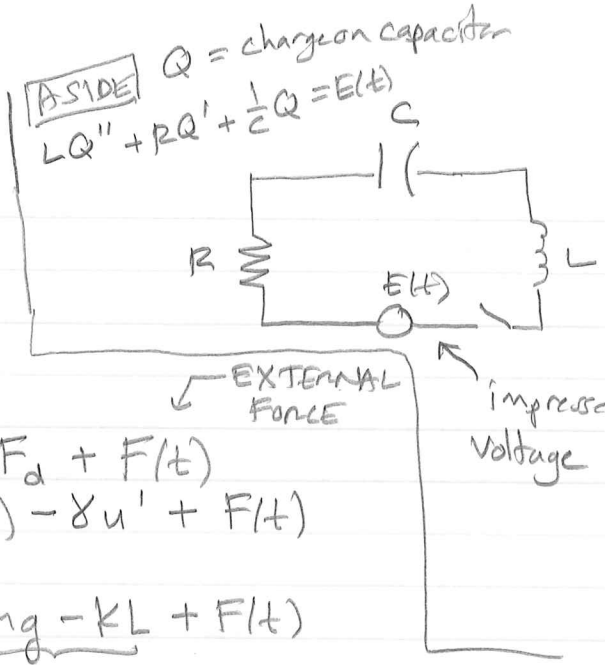 ASIDE Q = charge on capacitor
LQ'' + RQ' + 1/C Q = E(t)
C
R
L
E(t)
EXTERNAL
FORCE
impresse
Voltage
F_d + F(t)
) - γu' + F(t)
mg - KL + F(t)